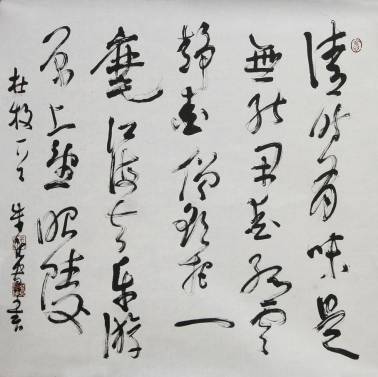 清時有味是
無能閑愛孤雲
靜愛僧欲把一
麾江海去樂游
原上望昭陵
杜牧